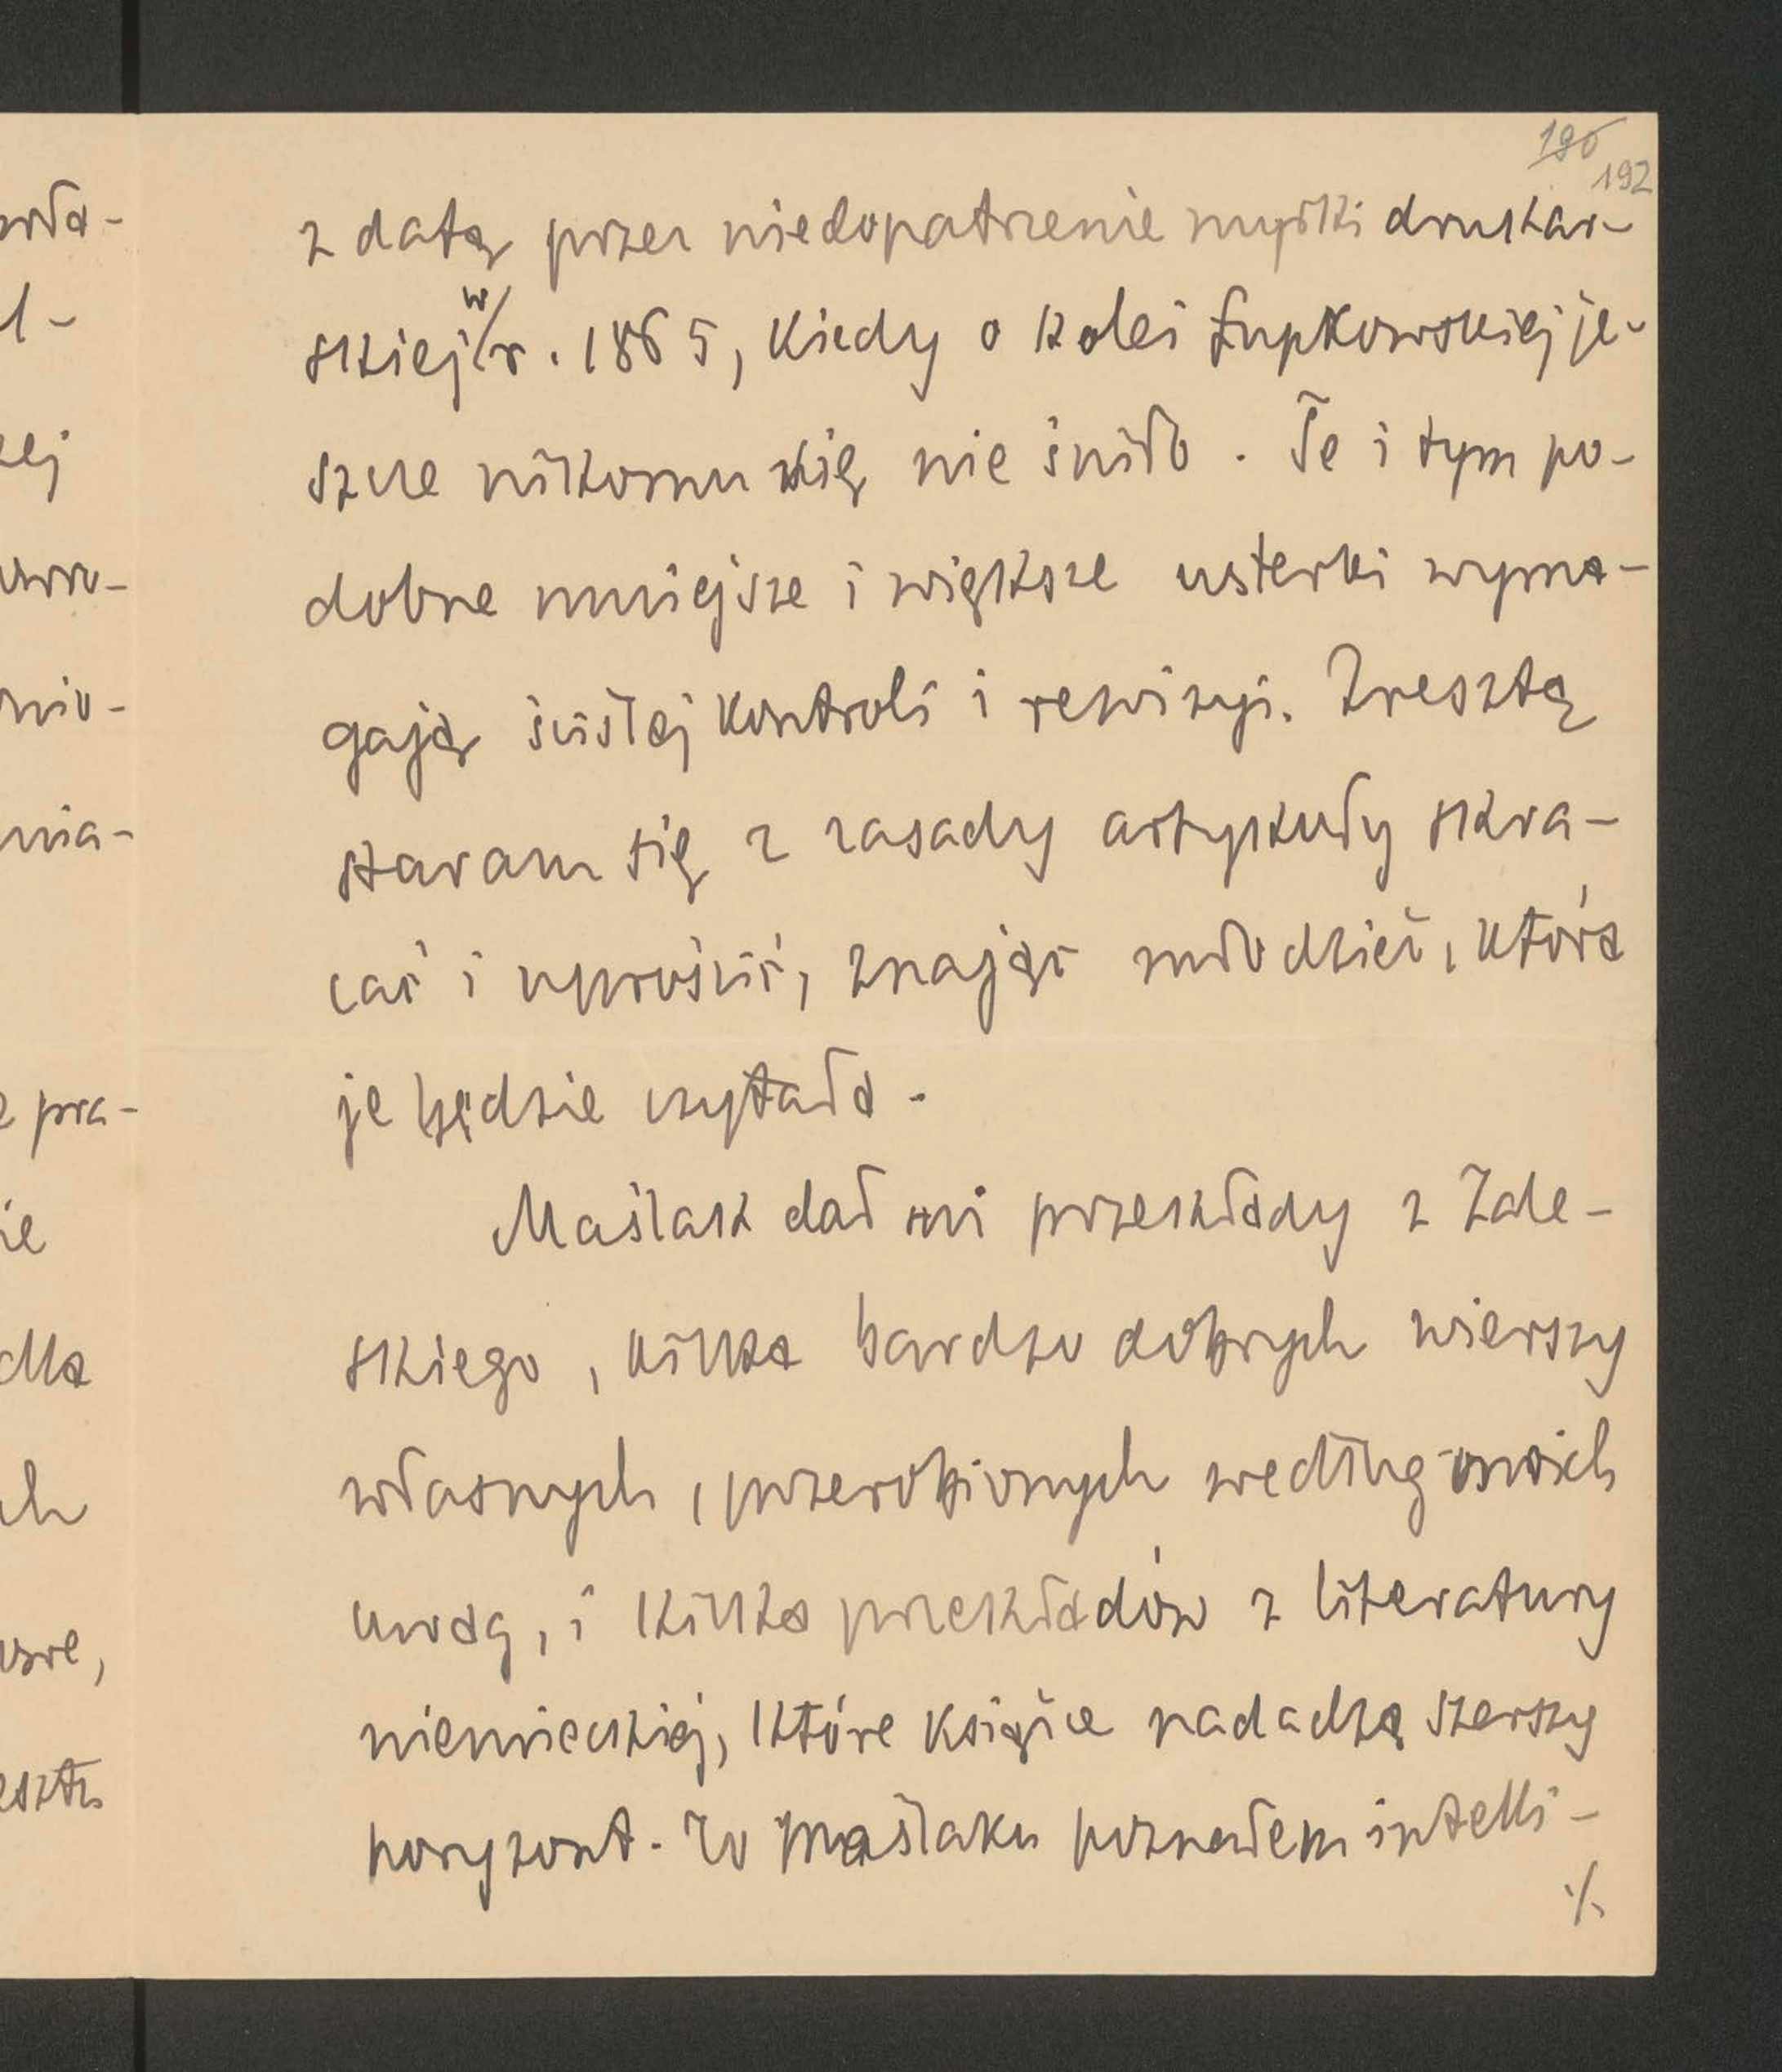 190
192
z datą przez niedopatrzenie myłki drukar-
skiej w r. 1865, kiedy o kolei Łupkowskiej je-
szcze nikomu się nie śniło. Te i tym po-
dobne mniejsze i większe usterki wyma-
gają ścisłej kontroli i rewizyi. Zresztą
staram się z zasady artykuły skra-
cać i uprościć, znając młodzież, która
je będzie czytała.
Maślak dał mi przekłady z Zale-
skiego, kilka bardzo dobrych wierszy
własnych, przerobionych według moich
uwag, i kilka przekładów z literatury
niemieckiej, które książce nadadzą szerszy
horyzont. Po Maślaku poznałem intelli-
./.
wła-
l-
zej
nio-
mia-
e pra-
ie
dla
ch
eszt.